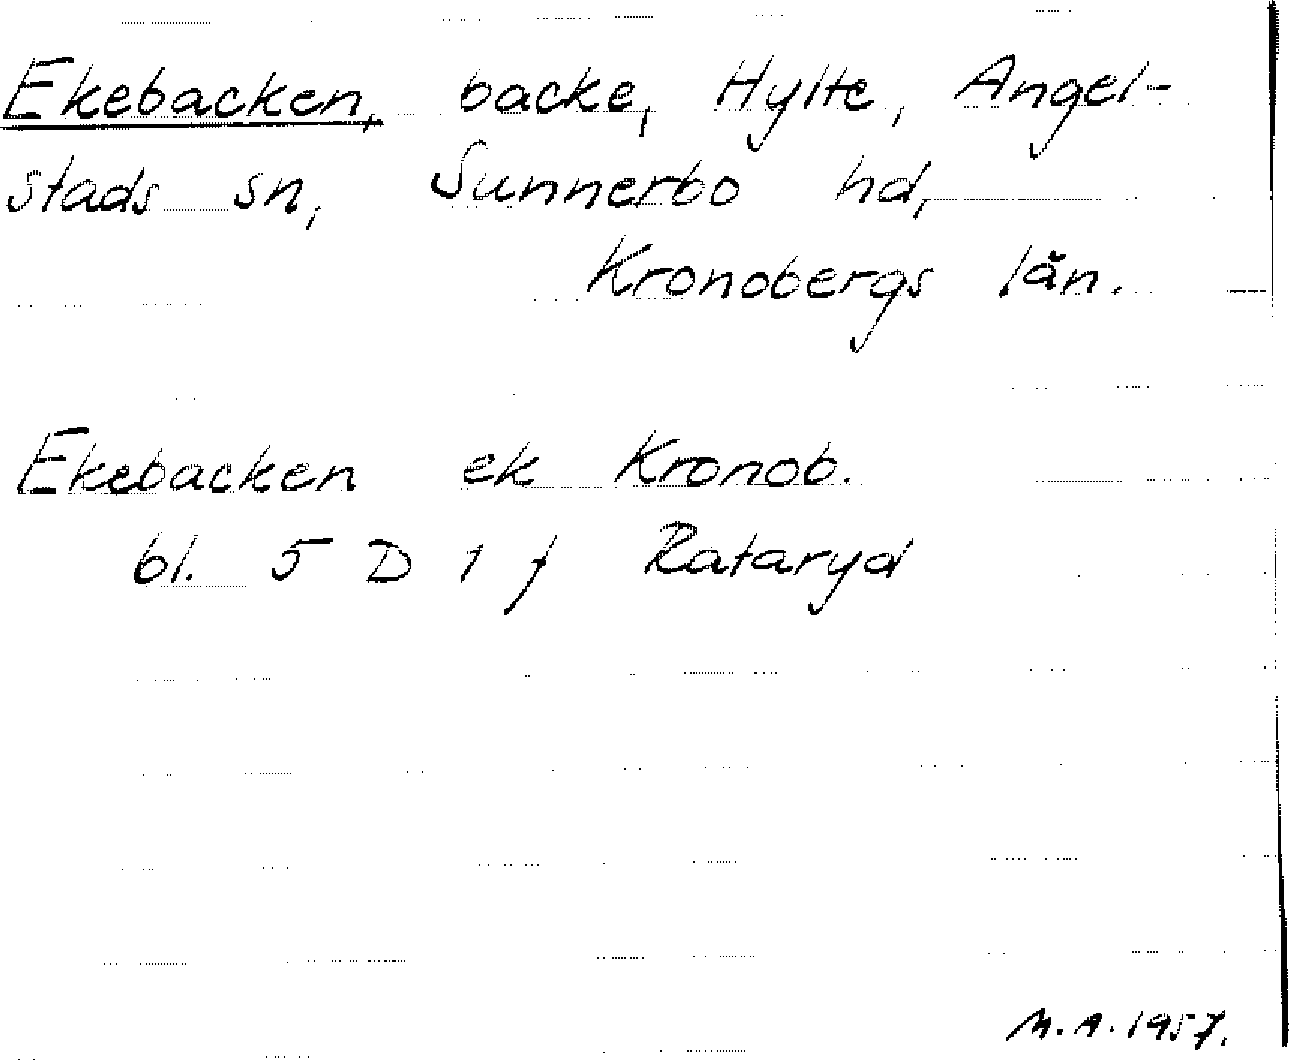 Ekebacken, backe, Hylte, Angel-
stads sn, Sunnerbo hd,
Kronobergs län.
Ekebacken ek Kronob.
bl. 5 D 1 f Rataryd
M.A. 1957.